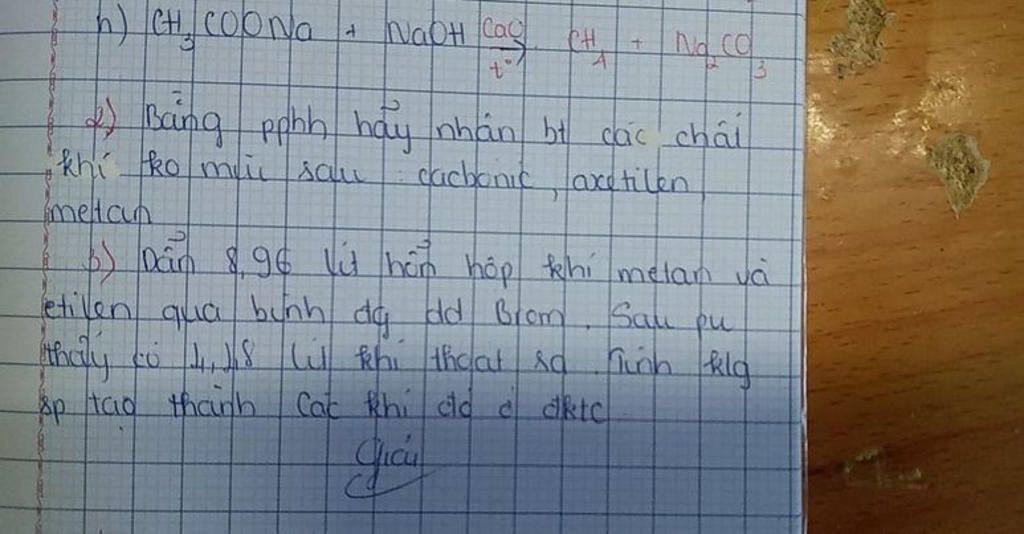 h) CH3COONa + NaOH CaO → t° CH4 + Na2CO3
2) Bằng pphh hãy nhận bt các chất
khí ko màu sau : cacbonic, axetilen,
metan
3) Dẫn 8,96 lit hỗn hợp khí metan và
etilen qua bình đg dd Brom. Sau pu
thấy có 4,48 lit khí thoat ra. Tính klg
sp tạo thành Các khí đo ở đktc
Giải